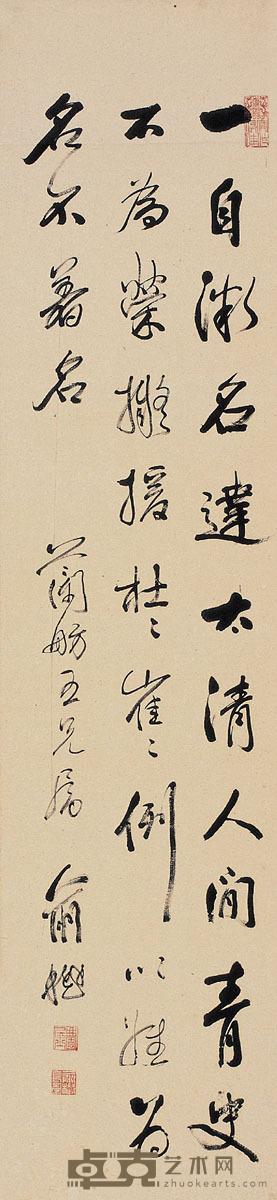 一自微名達太清人間青史
不為榮擬援杜〻崔〻例以姓為
名不著名
蘭舫五兄屬 俞樾
卓克艺术网
zhuokearts.com